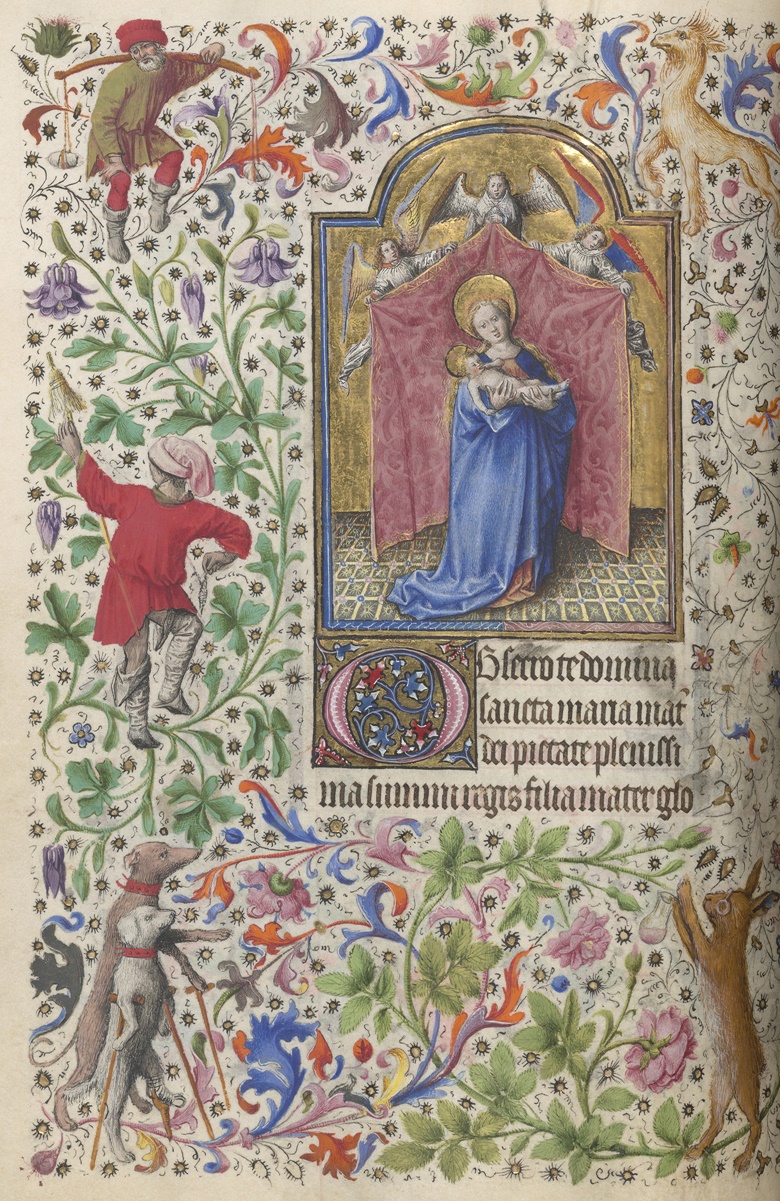 OBsecro te domina
sancta maria mat'
dei pietate plenissi
ma summi regis filia mater glo